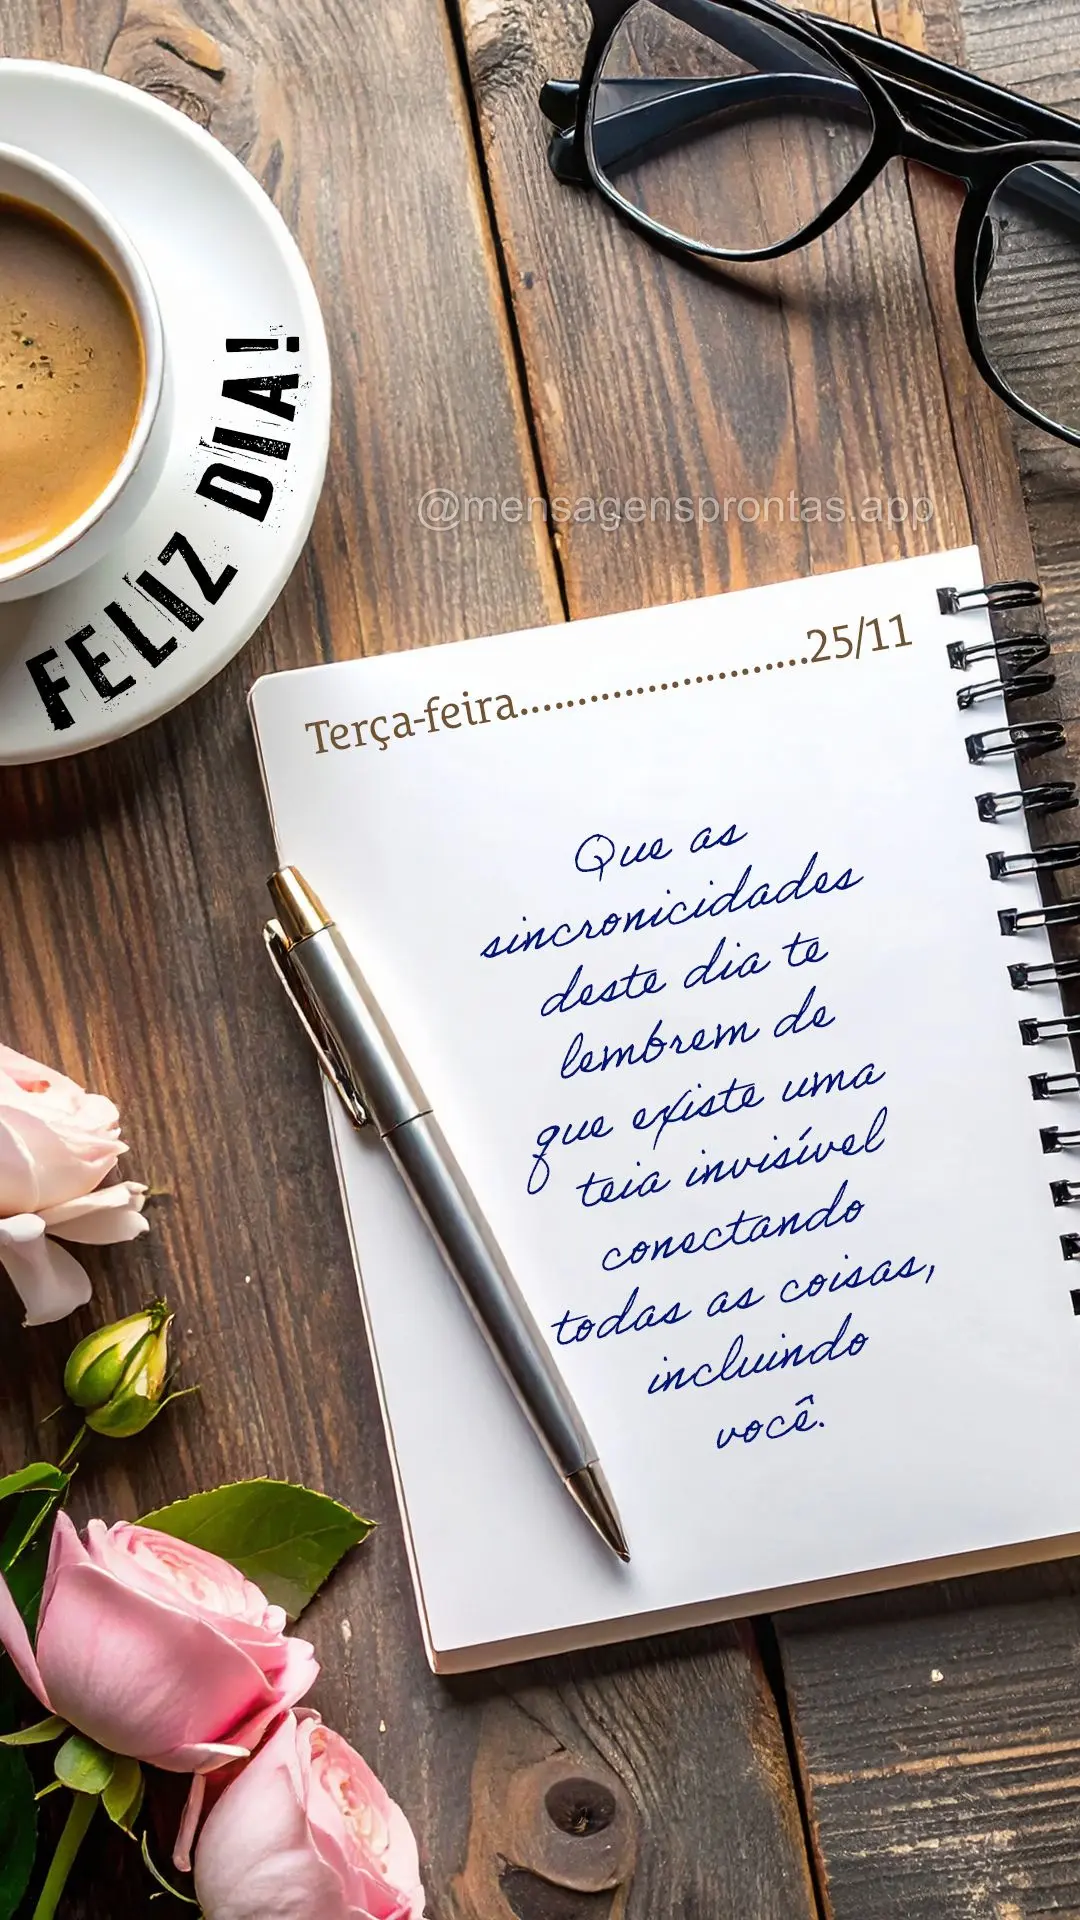 FELIZ DIA!
@mensagensprontas.app
Terça-feira.........................25/11
Que as
sincronicidades
deste dia te
lembrem de
que existe uma
teia invisível
conectando
todas as coisas,
incluindo
você.